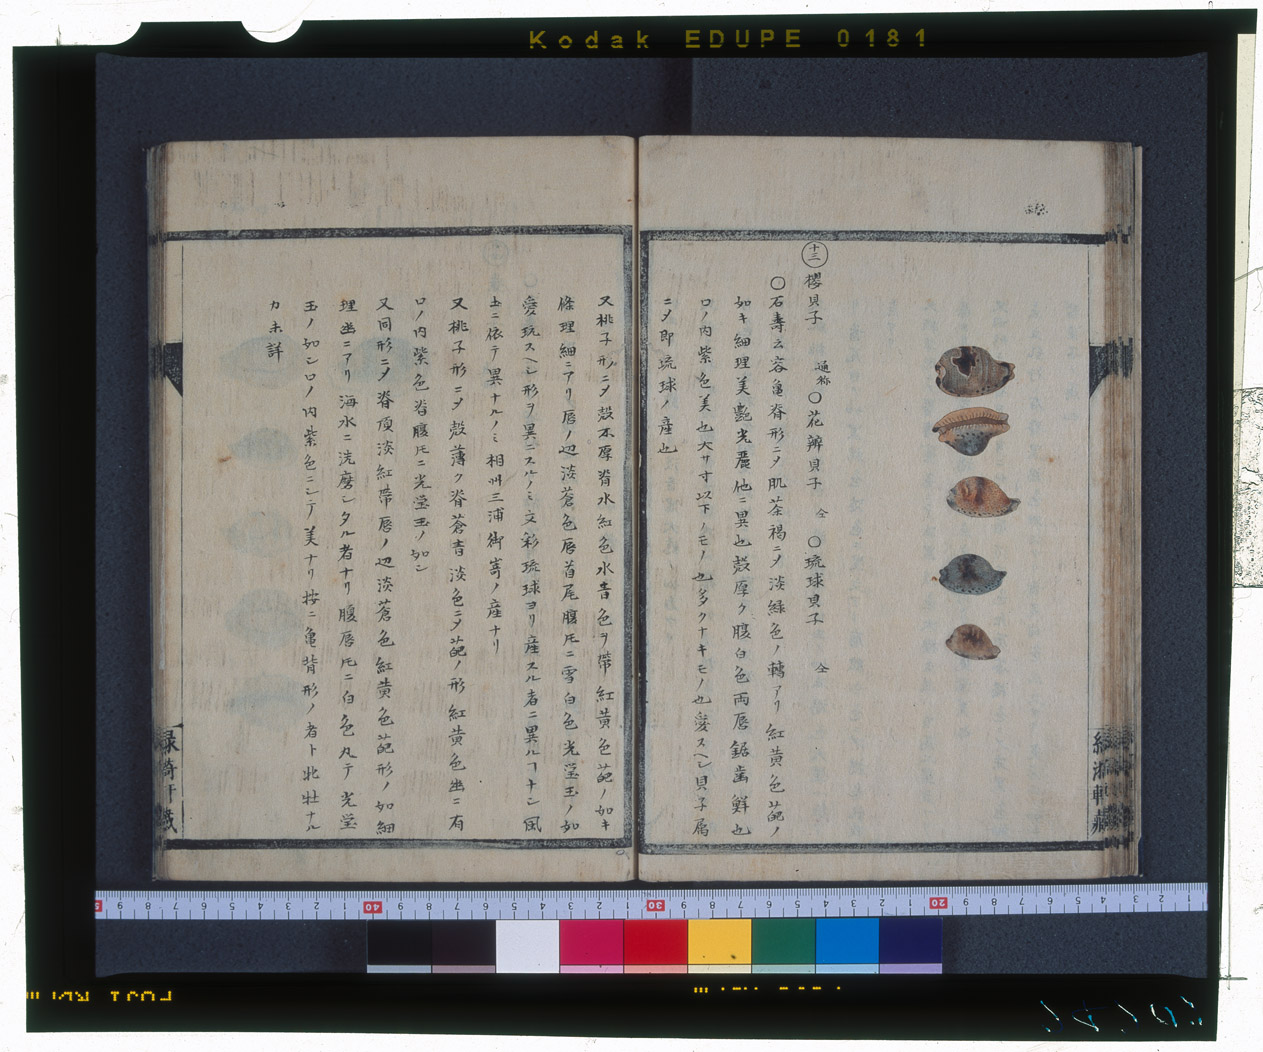 Kodak EDUPE 0181
十三 櫻貝子 通称 〇花辨貝子 仝 〇琉球貝子 仝
〇石壽云容亀脊形ニ〆肌茶褐ニ〆淡緑色ノ轉アリ紅黄色葩ノ
如キ細理美艶光麗他ニ異也殻厚ク腹白色両唇鋸歯鮮也
口ノ内紫色美也大サ寸以下ノモノ也多クナキモノ也愛スヘシ貝子属
ニ〆即琉球ノ産也
又桃子形ニ〆殻本厚脊水紅色水青色ヲ帯紅黄色葩ノ如キ
條理細ニアリ唇ノ辺淡蒼色唇首尾腹圧ニ雪白色光瑩玉ノ如
愛玩スヘシ形ヲ異ニスルノミ文彩琉球ヨリ産スル者ニ異ルヿナシ風
土ニ依テ異ナルノミ相州三浦御嵜ノ産ナリ
又桃子形ニ〆殻薄ク脊蒼青淡色ニ〆葩ノ形紅黄色幽ニ有
口ノ内紫色脊腹圧ニ光瑩玉ノ如シ
又同形ニ〆脊頂淡紅帯唇ノ辺淡蒼色紅黄色葩形ノ如細
理幽ニアリ海水ニ洗磨シタル者ナリ腹唇圧ニ白色丸テ光瑩
玉ノ如シ口ノ内紫色ニシテ美ナリ按ニ亀背形ノ者ト牝牡ナル
カ未詳
緑漪軒蔵
緑漪軒蔵